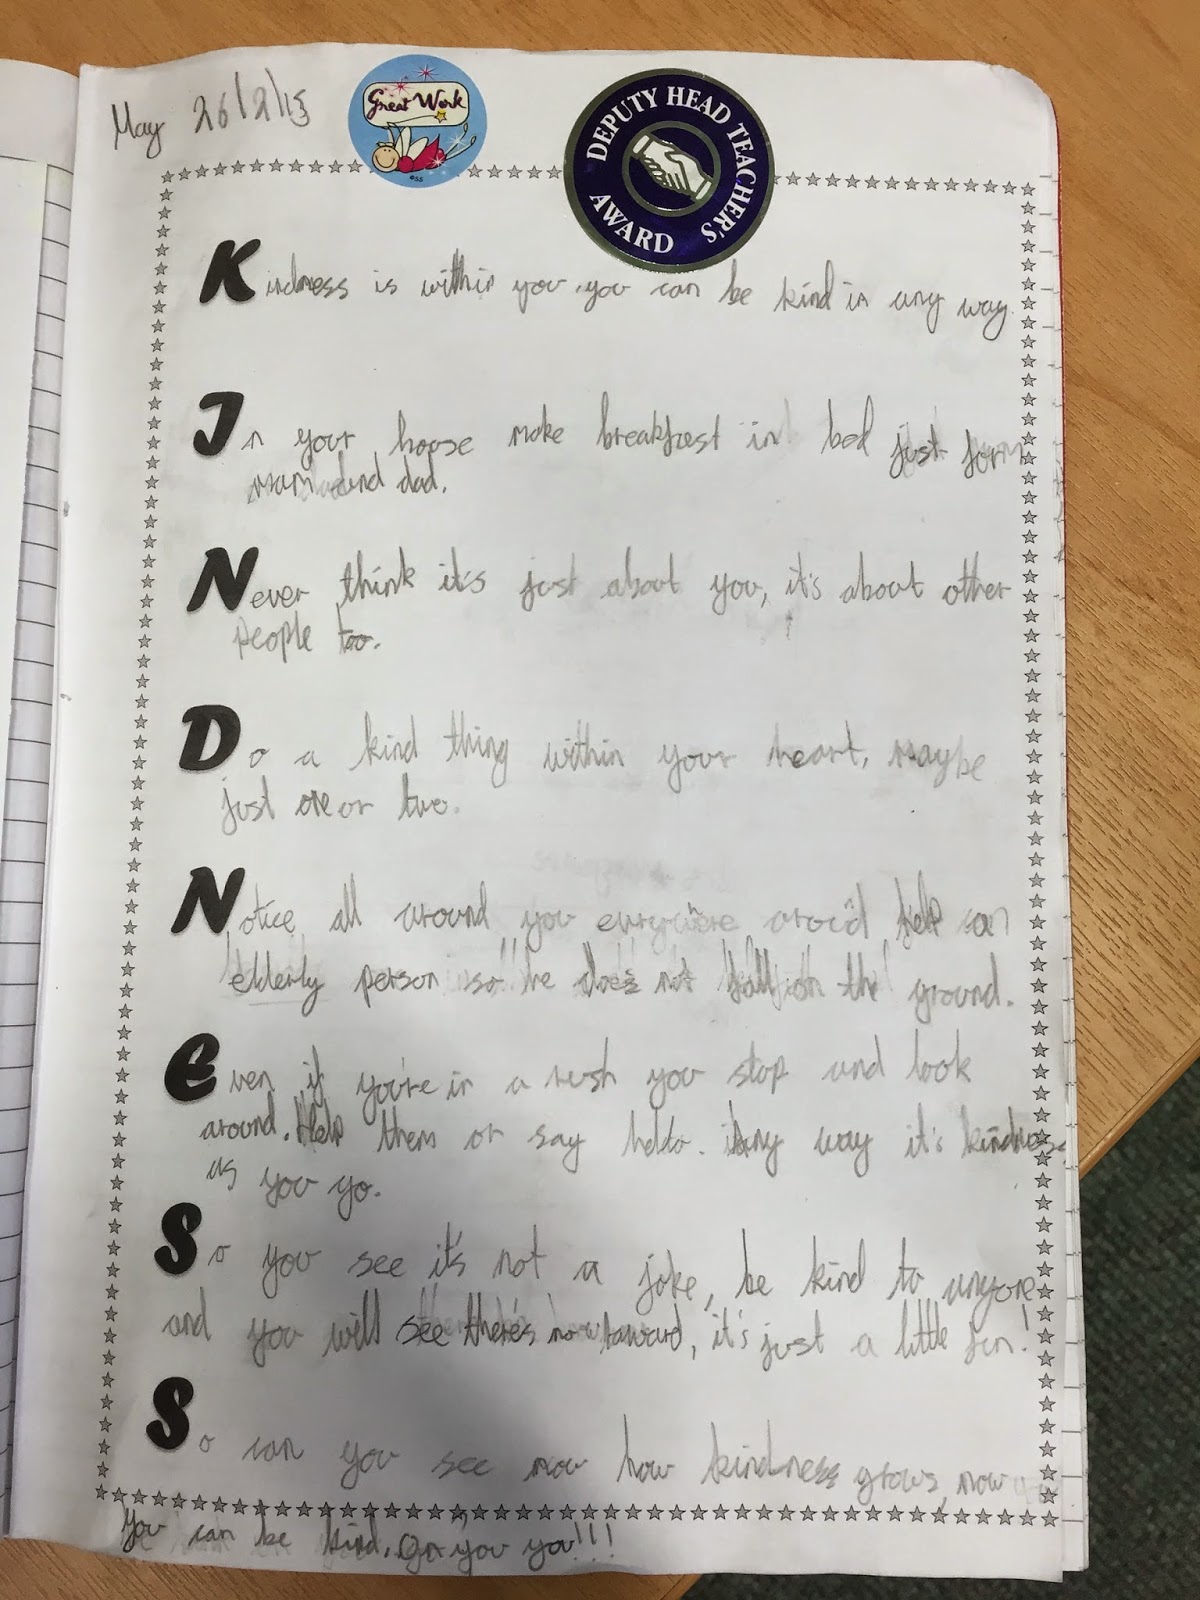 May 26/2/15
Great Work
DEPUTY HEAD TEACHER'S AWARD
Kindness is within you. you can be kind in any way.
In your hoose make breakfrest in bed just form
mum and dad.
Never think it's just about you, it's about other
people too.
Do a kind thing within your heart, maybe
just one or two.
Notice all around you help an
elderly person so he does not fall on the ground.
Even if you're in a rush you stop and look
around. Help them or say hello. Any way it's kindness
as you go.
So you see it's not a joke, be kind to anyone
and you will see there's now it's just a little fun!
So can you see now how kindness grows, now
you can be kind, on you you!!!